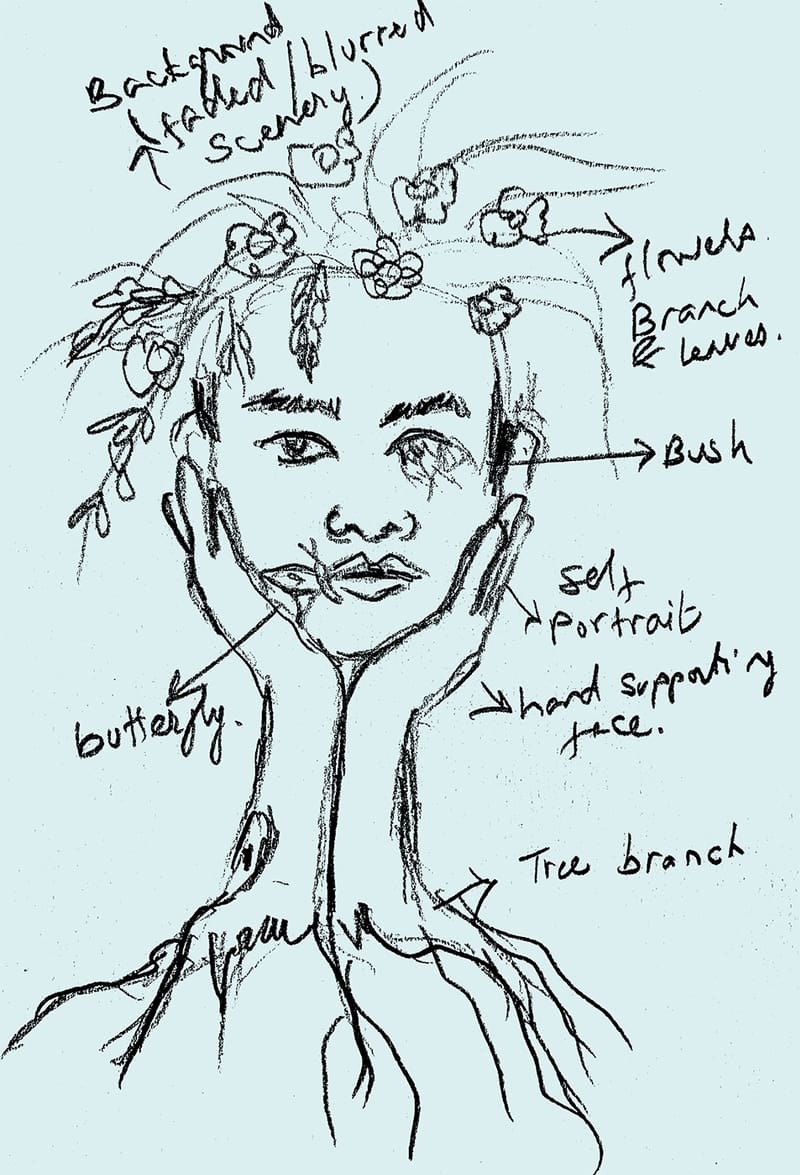 Background
(faded/blurred
scenery.)
flowers.
Branch
& leaves.
Bush
self
portrait
hand supporting
face.
butterfly.
Tree branch